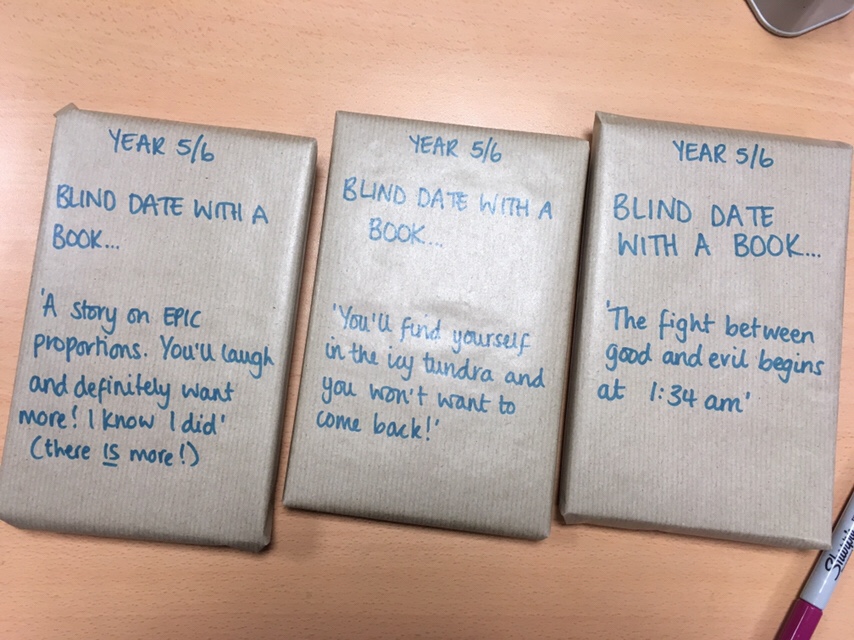 YEAR 5/6
BLIND DATE WITH A
BOOK...
'A story on EPIC
proportions. You'll laugh
and definitely want
more! I know I did'
(there IS more!)
YEAR 5/6
BLIND DATE WITH A
BOOK...
'You'll find yourself
in the icy tundra and
you won't want to
come back!'
YEAR 5/6
BLIND DATE
WITH A BOOK...
'The fight between
good and evil begins
at 1:34 am'
Sharpie